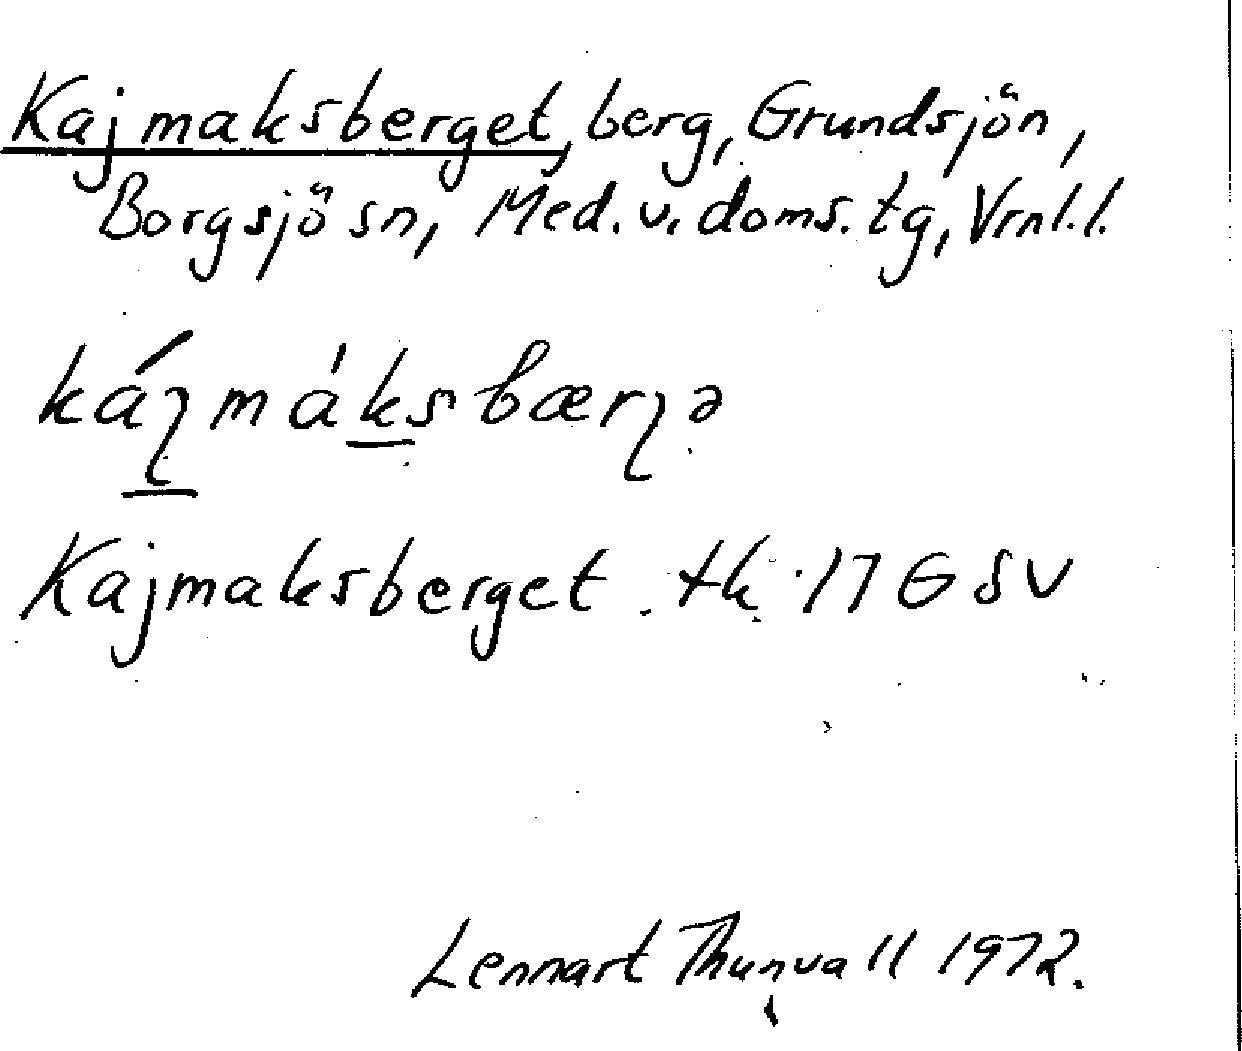 Kajmaksberget, berg, Grundsjön,
Borgsjö sn, Med. v. doms. tg, Vrnl. l.
Kajmaksberget tk 17 G SV
Lennart Thunvall 1972.